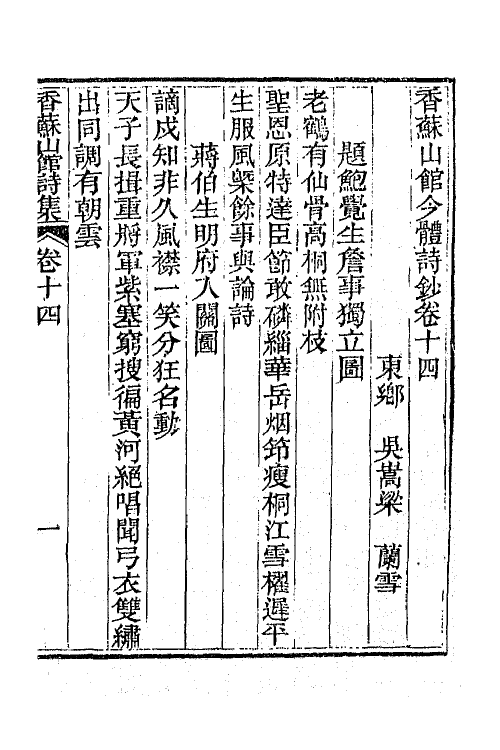 香蘇山館今體詩鈔卷十四
東鄉 吳嵩梁 蘭雪
題鮑覺生詹事獨立圖
老鶴有仙骨高桐無附枝
聖恩原特達臣節敢磷緇華岳烟筇瘦桐江雪櫂遲平
生服風槩餘事與論詩
蔣伯生明府入關圖
謫戍知非久風襟一笑分狂名動
天子長揖重將軍紫塞窮搜徧黃河絕唱聞弓衣雙繡
出同調有朝雲
香蘇山館詩集 卷十四 一